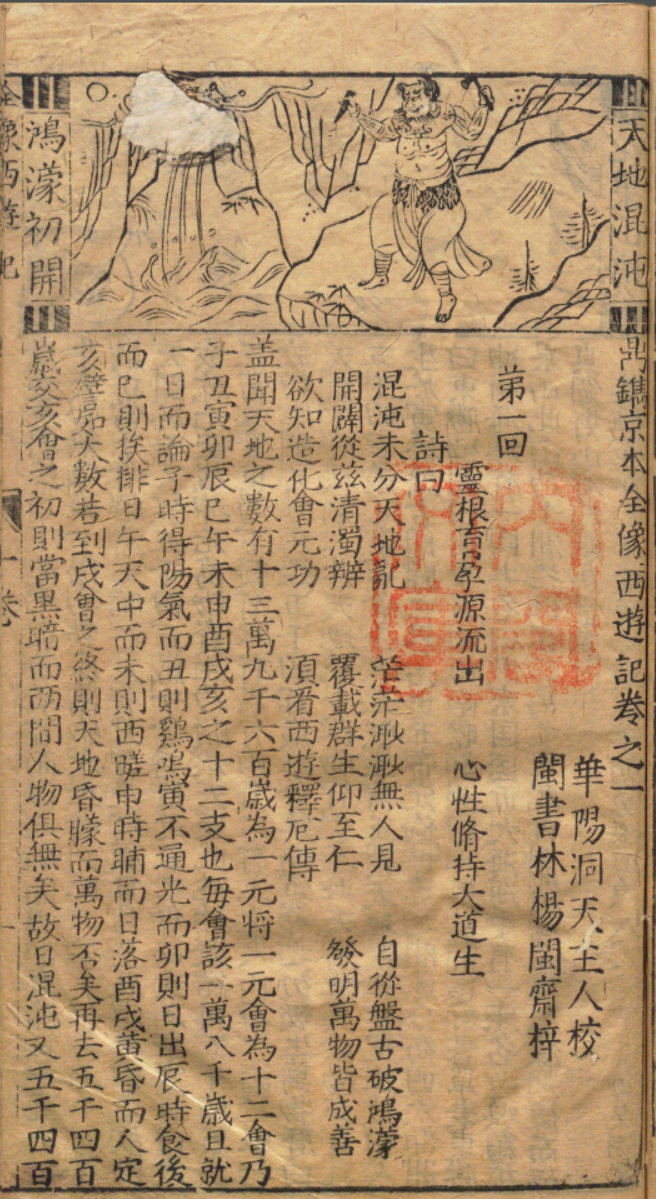 天地混沌
鴻濛初開
鼎鐫京本全像西遊記卷之一
華陽洞天主人校
閩書林楊閩齋梓
第一回
靈根育孕源流出 心性脩持大道生
詩曰
混沌未分天地乱 茫茫渺渺無人見 自從盤古破鴻濛
開闢從茲清濁辨 覆載群生仰至仁 發明萬物皆成善
欲知造化會元功 湏看西遊釋厄傳
盖聞天地之數有十三萬九千六百歲為一元将一元會為十二會乃
子丑寅卯辰巳午未申酉戌亥之十二支也每會該一萬八千歲且就
一日而論子時得陽氣而丑則鷄鳴寅不通光而卯則日出辰時食後
而巳則挨排日午天中而未則西蹉申時晡而日落酉戌黃昏而人定
亥譬於大數若到戌會之終則天地昏曚而萬物否矣再去五千四百
歲交亥會之初則當黑暗而兩間人物俱無矣故曰混沌又五千四百
全像西遊記
一卷